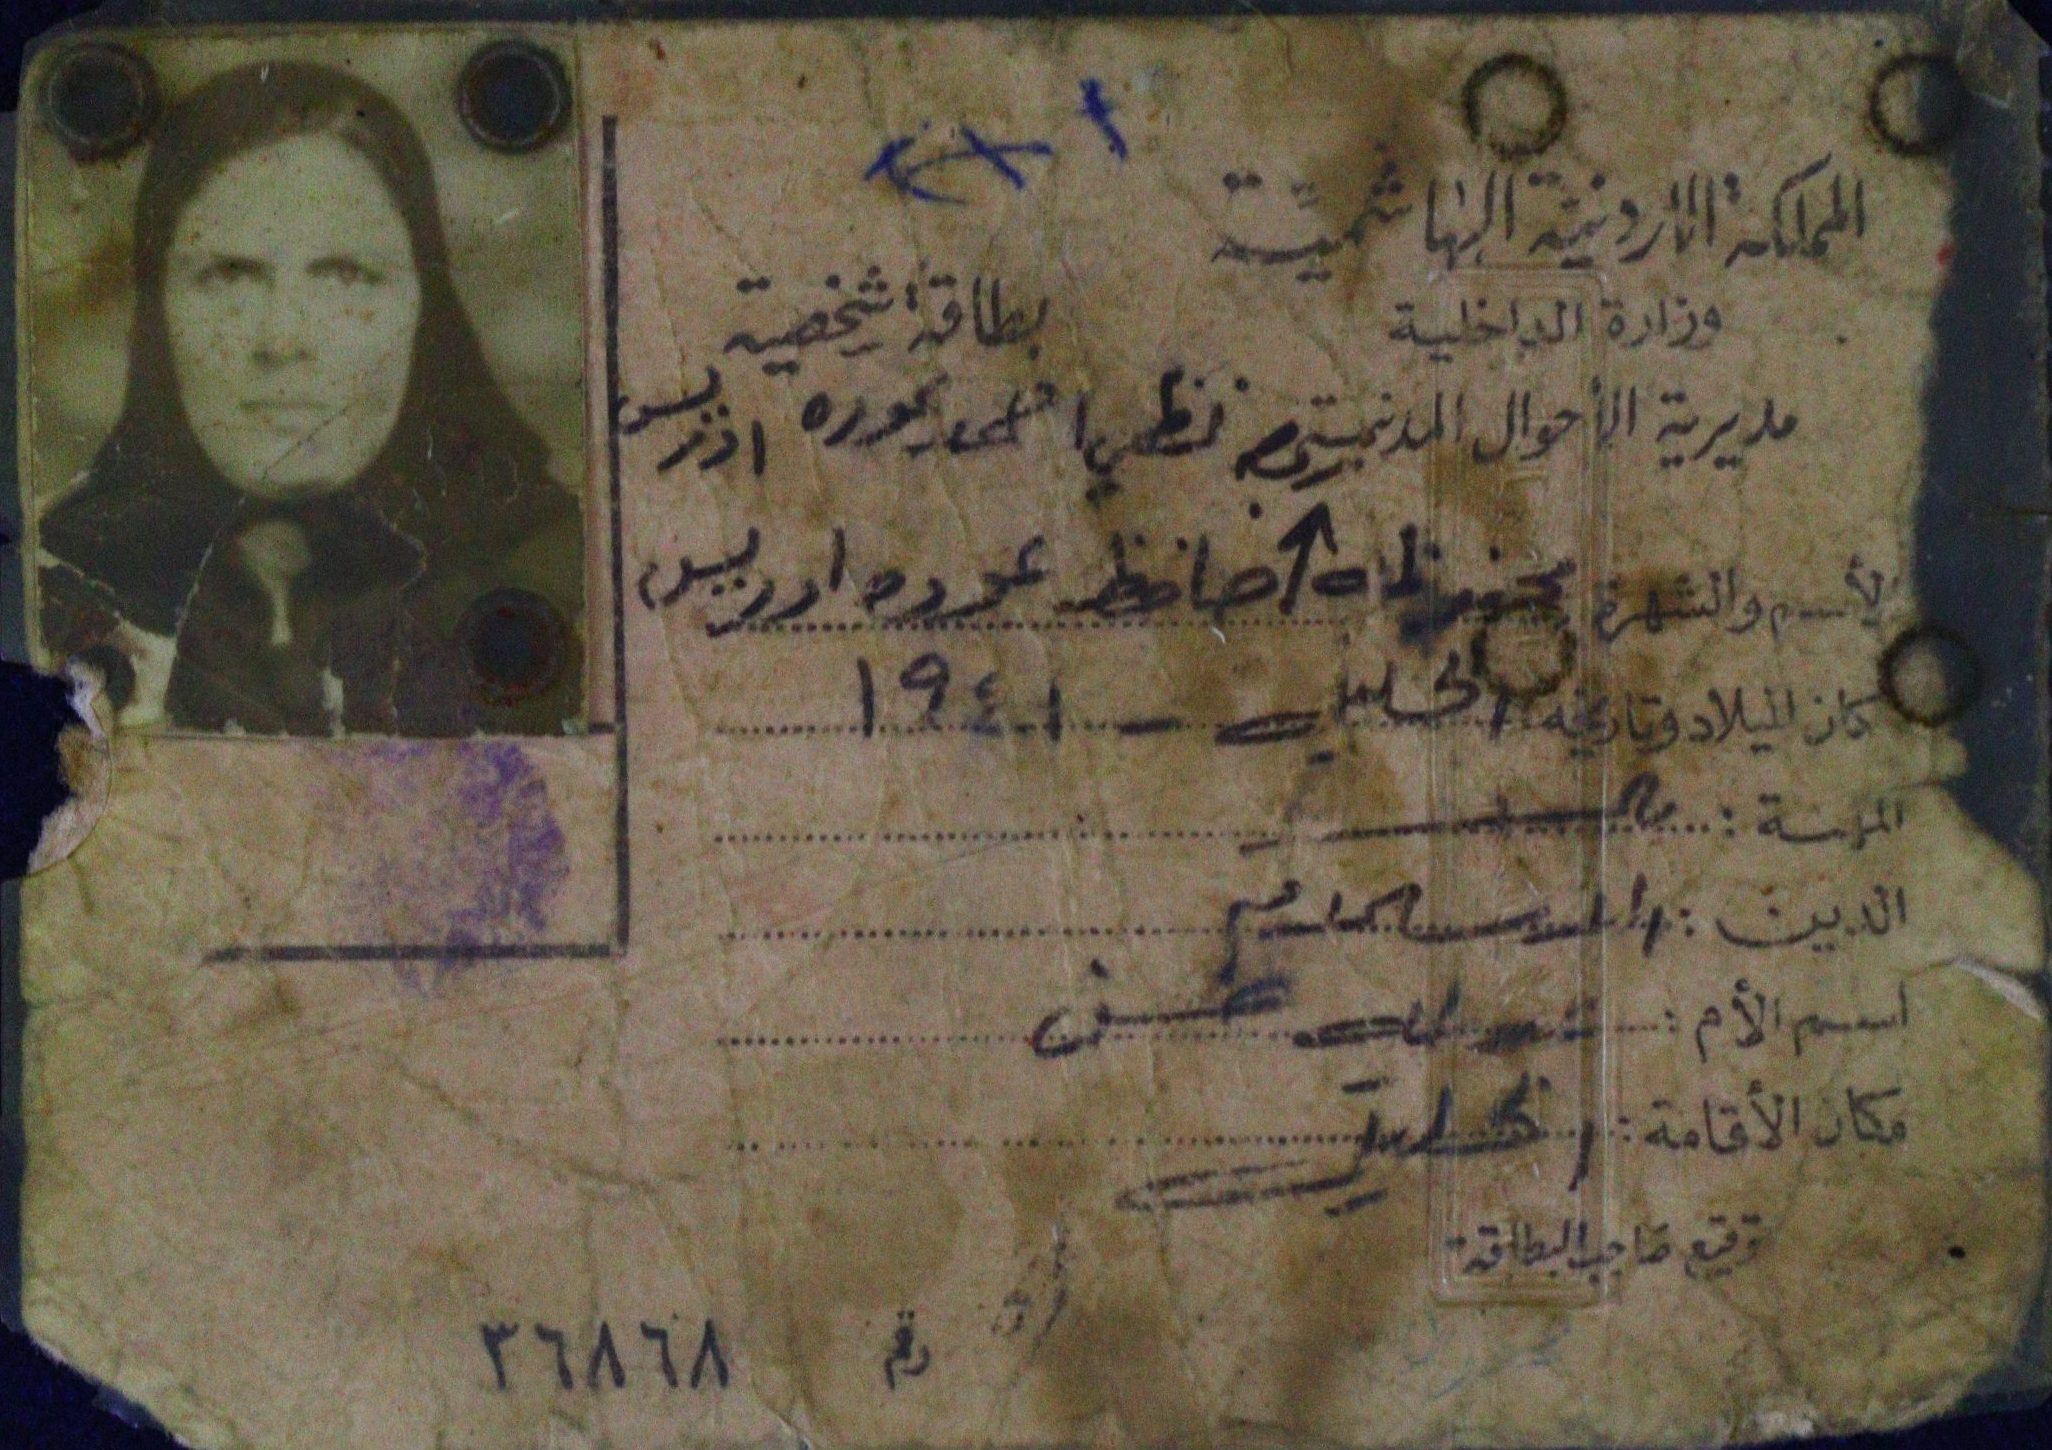 المملكة الاردنية الهاشمية
وزارة الداخلية
بطاقة شخصية
مديرية الأحوال المدنية
ادريس
الأسم والشهرة محفوظه حافظ عوده ادريس
مكان الميلاد وتاريخه الخليل - ١٩٤١
المهنة :
الدين : الاسلام
اسم الأم : حسن
مكان الأقامة : الخليل
توقيع صاحب البطاقة
رقم ٣٦٨٦٨